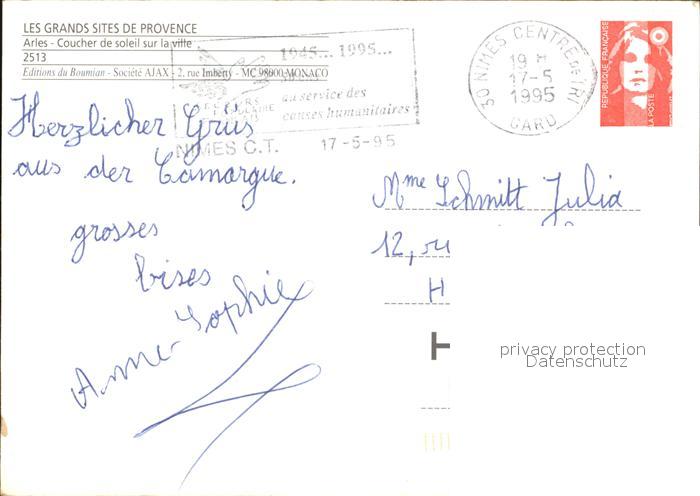 LES GRANDS SITES DE PROVENCE
Arles - Coucher de soleil sur la ville
2513
Editions du Boumian - Société AJAX - 2, rue Imberty - MC 98000 MONACO
1945... 1995...
au service des
causes humanitaires
NIMES C.T. 17-5-95
30 NIMES CENTRE DE TRI
19 H
17-5
1995
GARD
REPUBLIQUE FRANÇAISE
LA POSTE
Herzlicher Grüs
aus der Camargue.
grosses
bises
Anne-Sophie
Mme Schmitt Julia
12, ru
H
privacy protection
Datenschutz